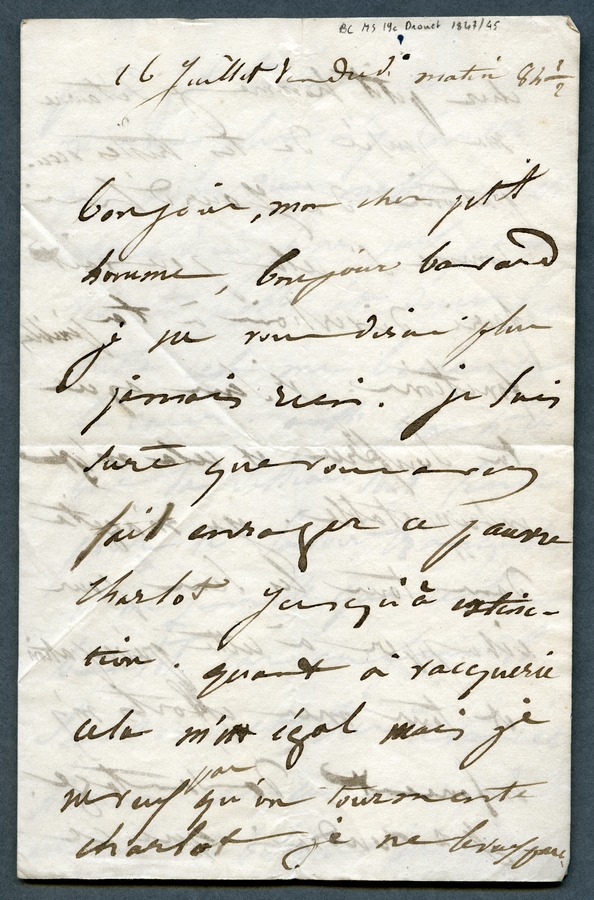 BC MS 19c Drouet 1847/45
16 Juillet Vendredi matin 8h ½
bonjour, mon cher petit
homme, bonjour bavard
je ne vous dirai plus
jamais rien. je suis
sure que vous avez
fait enrager ce pauvre
Charlot jusqu'à extinc-
tion. quant à vacquerie
cela m'est égal mais je
ne veux pas qu'on tourmente
charlot je ne le veux pas,